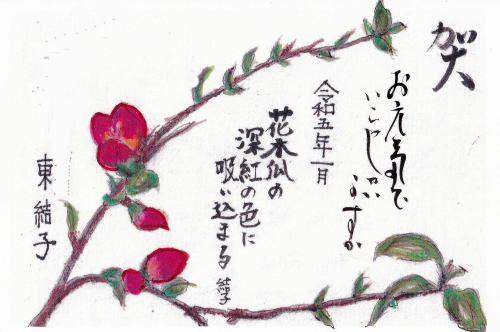 賀
お元気で
いらっしゃいますか
令和五年一月
花木瓜の
深紅の色に
吸い込まる
結子
東 結子